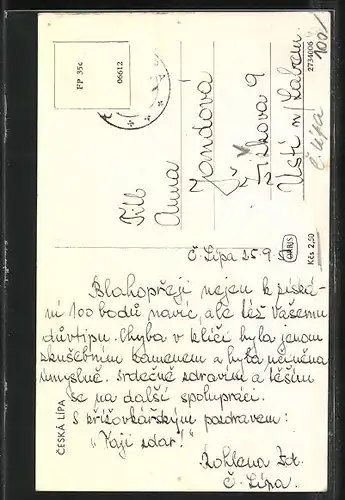 Č. Lípa 25. 9.
Blahopřeji nejen k získá-
ní 100 bodů navíc, ale též Vašemu
důvtipu. Chyba v klíči byla jenom
zkušebním kamenem a byla
úmyslně. Srdečně zdravím a těším
se na další spolupráci.
S křížovkářským pozdravem:
„Tají zdar!"
Č. Lípa.
ČESKÁ LÍPA
FP 35c
06612
Anna
Jandová
Žižkova 9
Ústí n Labem
Č Lípa
100
2734006
ORBIS
Kčs 2,50